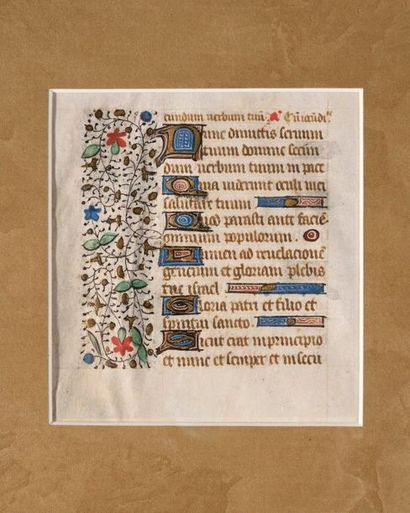 cundum verbum tuū. a Cū iocūdi.
Nunc dimittis servum
tuum domine secun
dum verbum tuum in pace
Quia viderunt oculi mei
salutare tuum
Quod parasti ante faciē
omnium populorum.
Lumen ad revelacionē
gencium et gloriam plebis
tue israel.
Gloria patri et filio et
spiritui sancto
Sicut erat in principio
et nunc et semper et in secu